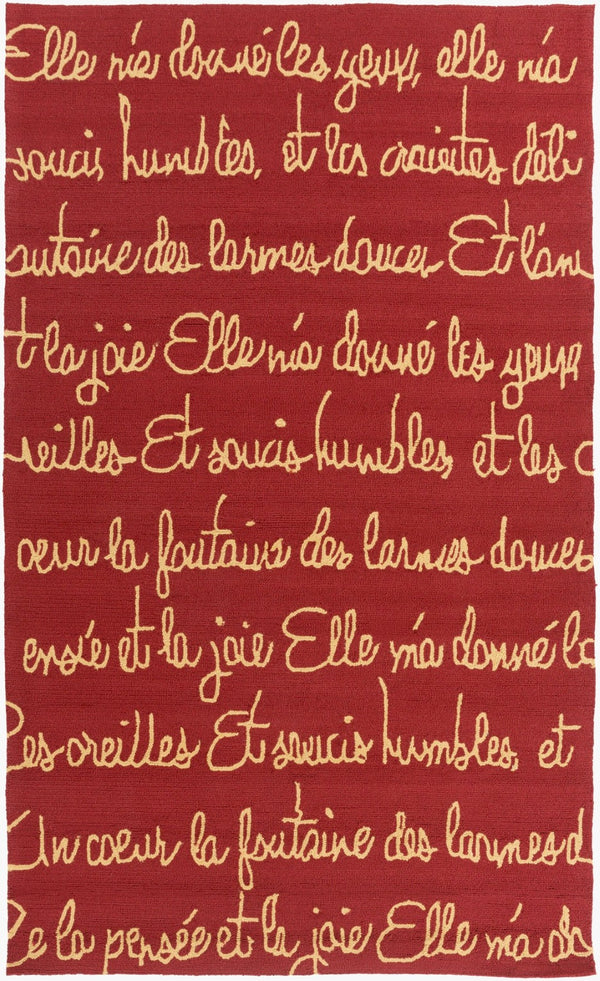 Elle m'a donné les yeux, elle m'a
soucis humbles, et les craintes déli
ontaine des larmes douces Et l'am
t la joie Elle m'a donné les yeux
reilles Et soucis humbles, et les c
oeur la fontaine des larmes douces
ensée et la joie Elle m'a donné le
les oreilles Et soucis humbles, et
Un coeur la fontaine des larmes d
De la pensée et la joie Elle m'a do